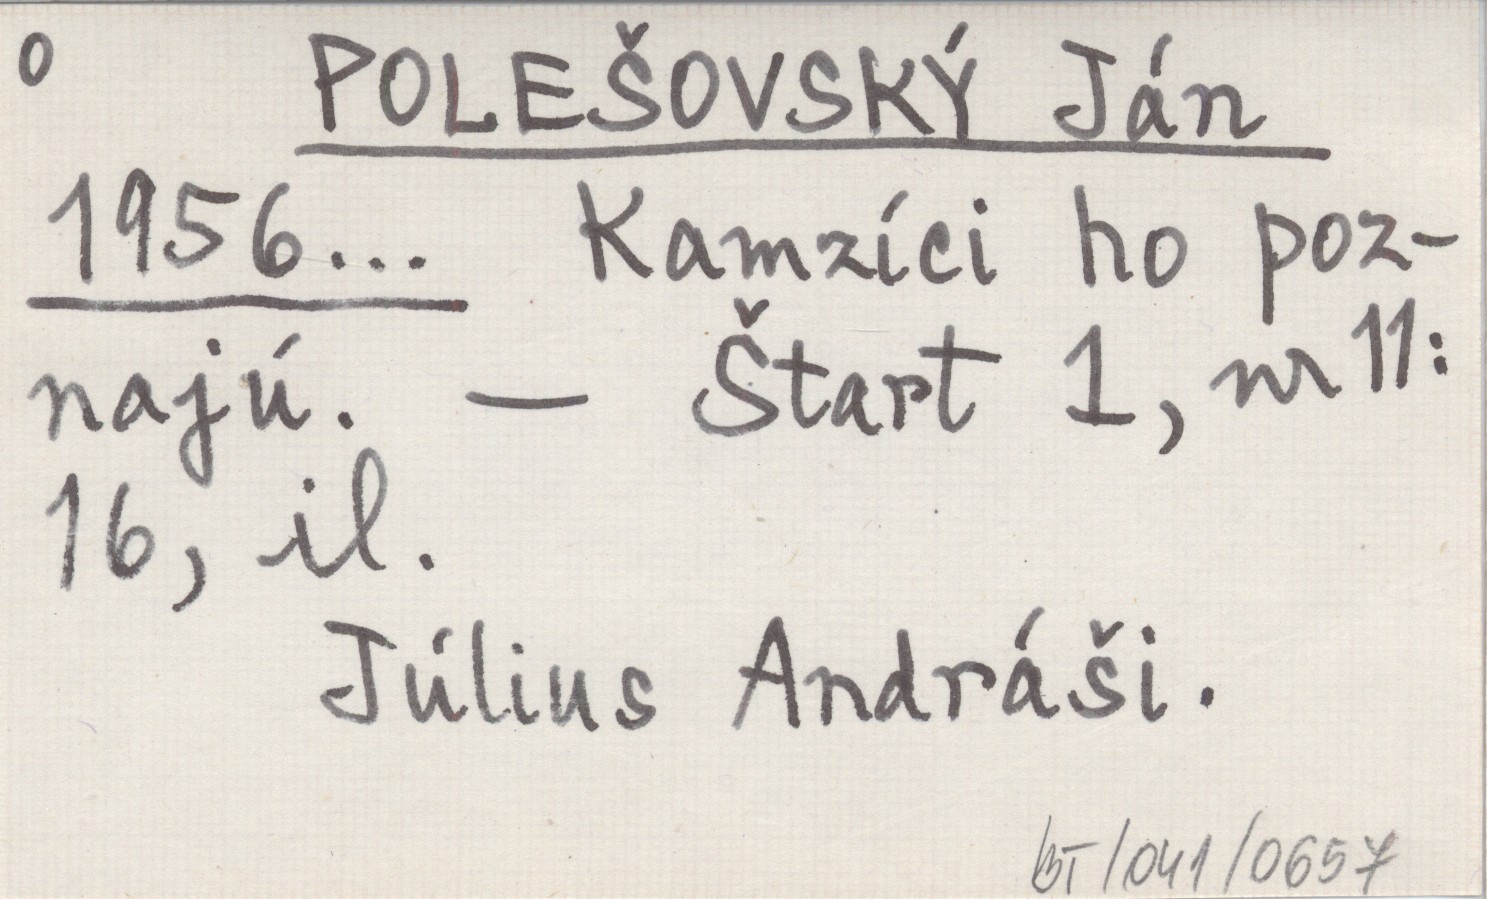 o
POLEŠOVSKÝ Ján
1956... Kamzíci ho poz-
najú. — Štart 1, nr 11:
16, il.
Július Andráši.
BT/041/0657